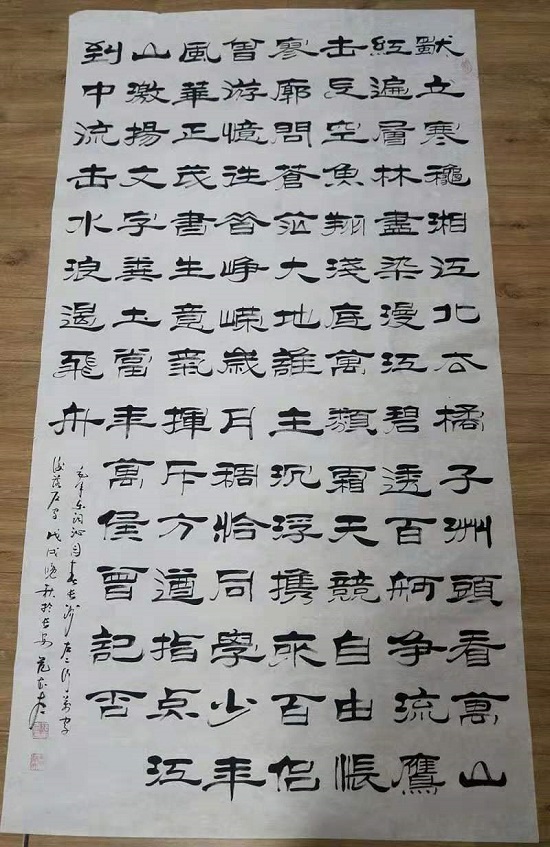 獨立寒龝湘江北去橘子洲頭看萬山
紅遍層林盡染漫江碧透百舸争流鷹
击長空魚翔淺底萬類霜天競自由悵
寥廓問蒼茫大地誰主沉浮攜來百侣
曾游憶往昔峥嵘歲月稠恰同學少年
風華正茂書生意氣揮斥方遒指点江
山激揚文字糞土當年萬侯曾記否
到中流击水浪遏飛舟
毛泽东词沁园春长沙
戊戌晚秋於长安